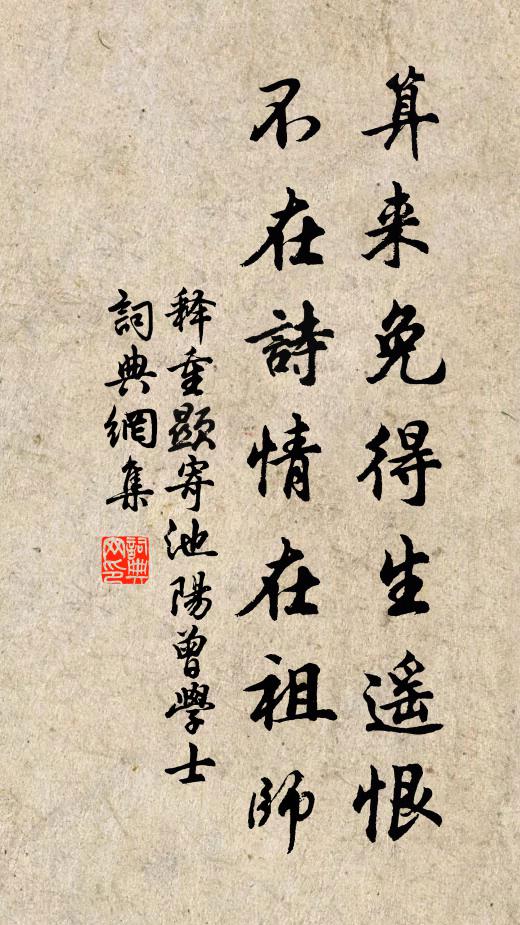 算来免得生遥恨
不在詩情在祖師
释重顯寄池陽曾學士
詞典網集
詞典网印